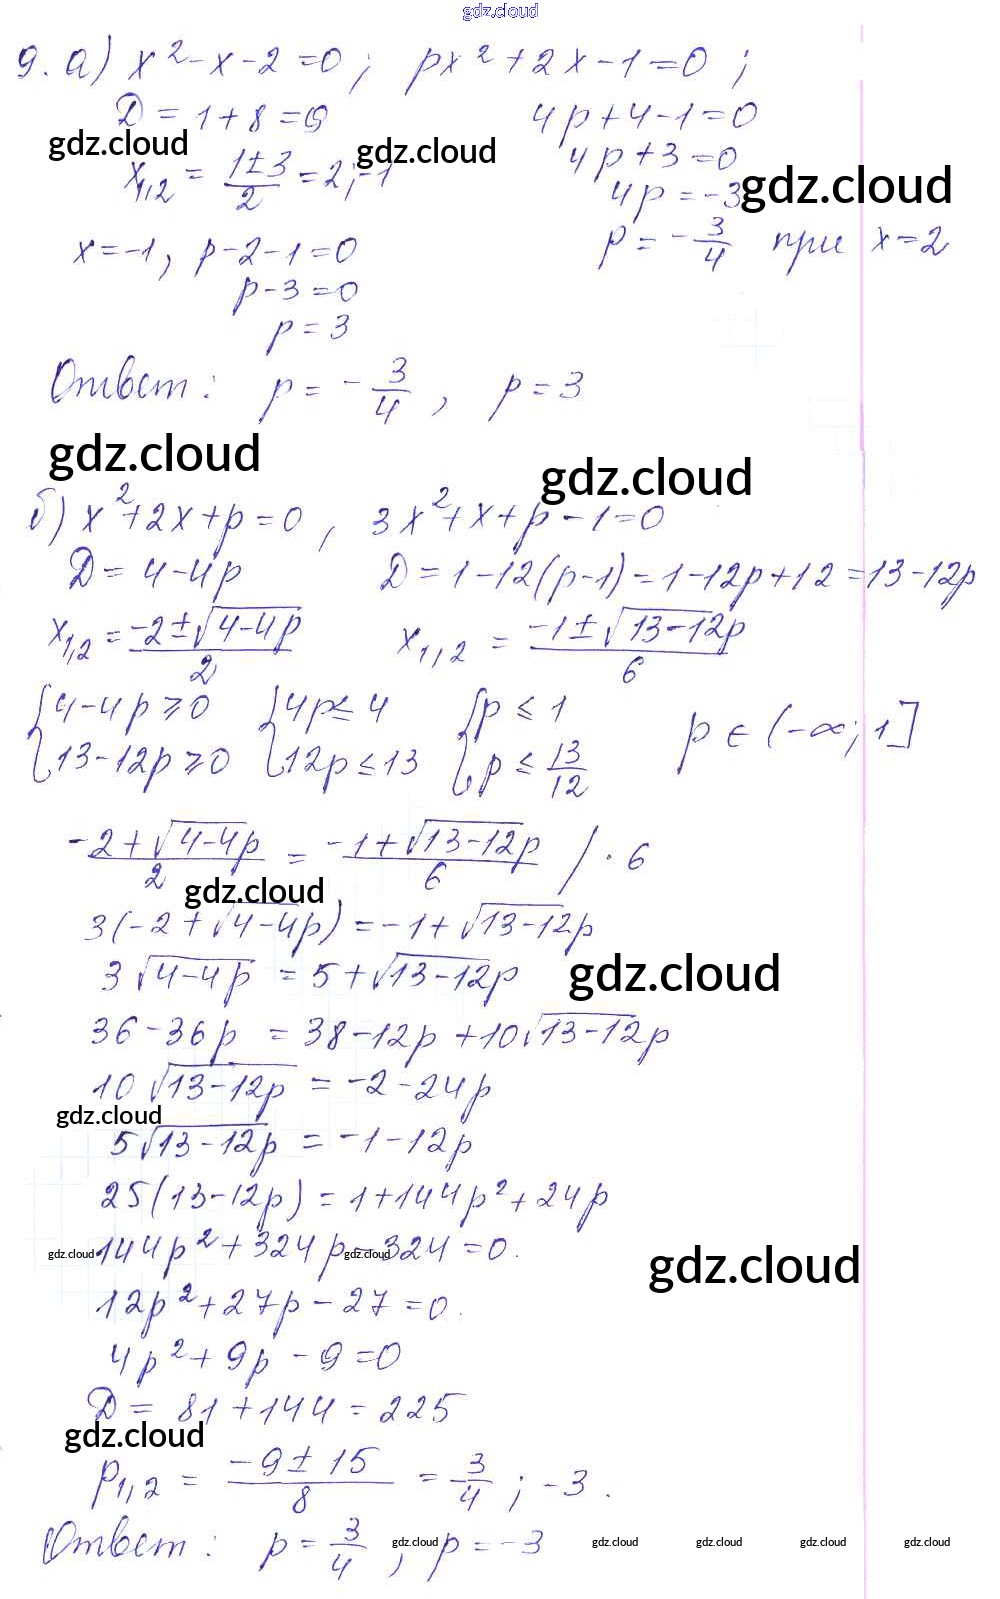 gdz.cloud
9. а) x² - x - 2 = 0; px² + 2x - 1 = 0;
Д = 1 + 8 = 9 4p + 4 - 1 = 0
gdz.cloud gdz.cloud 4p + 3 = 0
x₁,₂ = (1 ± 3)/2 = 2; -1 4p = -3 gdz.cloud
x = -1, p - 2 - 1 = 0 p = -3/4 при x = 2
p - 3 = 0
p = 3
Ответ: p = -3/4, p = 3
gdz.cloud gdz.cloud
б) x² + 2x + p = 0, 3x² + x + p - 1 = 0
Д = 4 - 4p Д = 1 - 12(p - 1) = 1 - 12p + 12 = 13 - 12p
x₁,₂ = (-2 ± √(4 - 4p))/2 x₁,₂ = (-1 ± √(13 - 12p))/6
{4 - 4p ≥ 0 {4p ≤ 4 {p ≤ 1 p ∈ (-∞; 1]
{13 - 12p ≥ 0 {12p ≤ 13 {p ≤ 13/12
(-2 + √(4 - 4p))/2 = (-1 + √(13 - 12p))/6 / · 6
gdz.cloud
3(-2 + √(4 - 4p)) = -1 + √(13 - 12p)
3√(4 - 4p) = 5 + √(13 - 12p) gdz.cloud
36 - 36p = 38 - 12p + 10√(13 - 12p)
10√(13 - 12p) = -2 - 24p
gdz.cloud
5√(13 - 12p) = -1 - 12p
25(13 - 12p) = 1 + 144p² + 24p
gdz.cloud 144p² + 324p - 324 = 0. gdz.cloud gdz.cloud
12p² + 27p - 27 = 0.
4p² + 9p - 9 = 0
Д = 81 + 144 = 225
gdz.cloud
p₁,₂ = (-9 ± 15)/8 = 3/4; -3.
Ответ: p = 3/4, p = -3 gdz.cloud gdz.cloud gdz.cloud gdz.cloud gdz.cloud